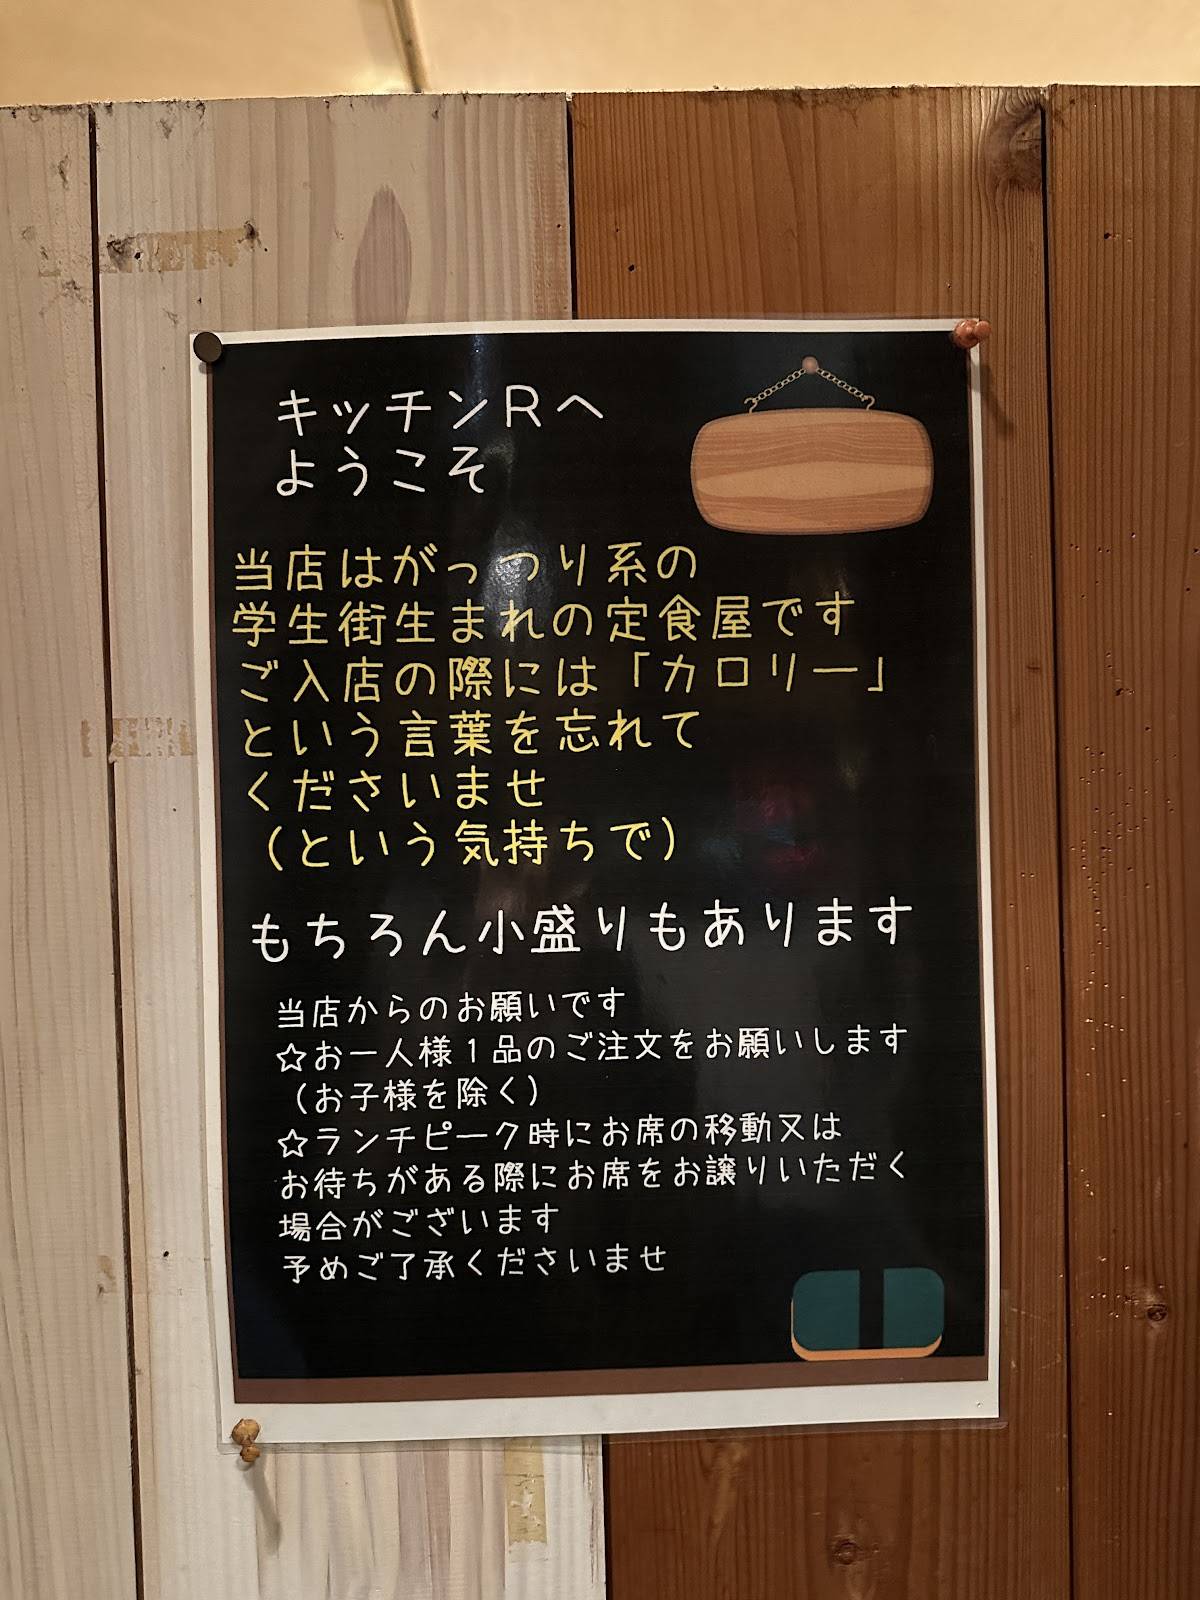 キッチンRへ
ようこそ
当店はがっつり系の
学生街生まれの定食屋です
ご入店の際には「カロリー」
という言葉を忘れて
くださいませ
（という気持ちで）
もちろん小盛りもあります
当店からのお願いです
☆お一人様１品のご注文をお願いします
（お子様を除く）
☆ランチピーク時にお席の移動又は
お待ちがある際にお席をお譲りいただく
場合がございます
予めご了承くださいませ